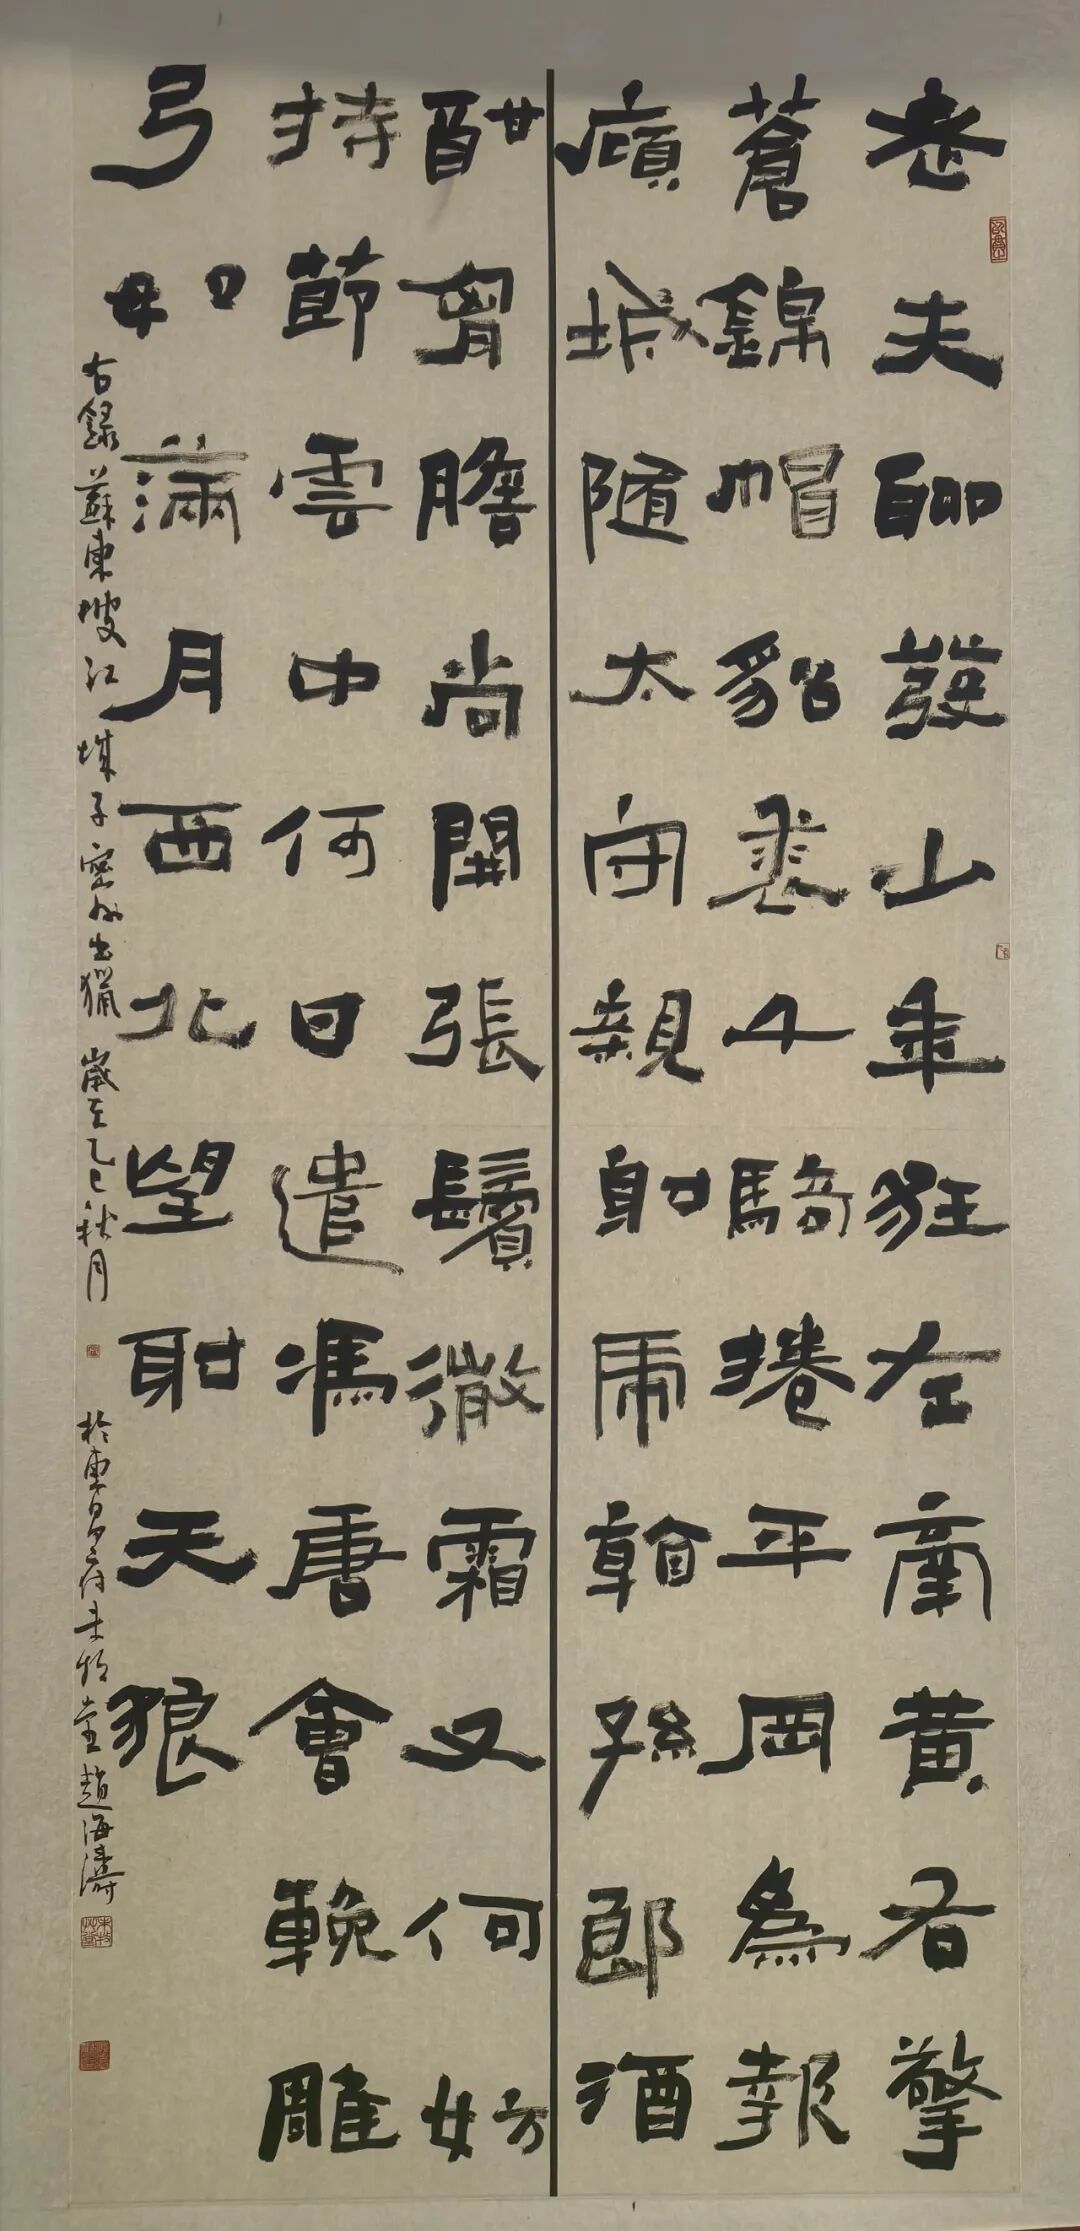 老夫聊發少年狂左牽黃右擎
蒼錦帽貂裘千騎捲平岡為報
傾城隨太守親射虎看孫郎酒
酣胸膽尚開張鬢微霜又何妨
持節雲中何日遣馮唐會輓雕
弓如滿月西北望射天狼
右錄蘇東坡江城子密州出獵 歲在乙巳秋月 於東昌 堂趙海濤